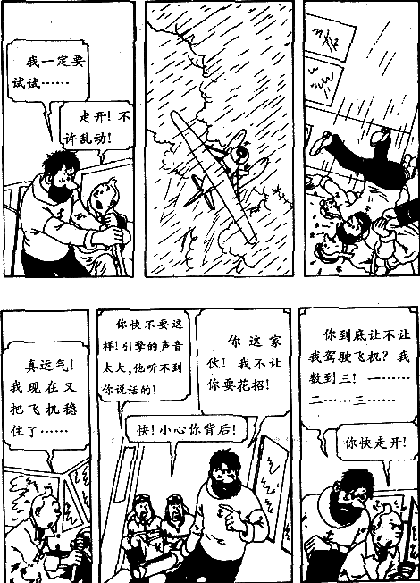 我一定要
试试……
走开！不
许乱动！
真运气！
我现在又
把飞机稳
住了……
你快不要这
样！引擎的声音
太大，他听不到
你说话的！
你这家
伙！我不让
你要花招！
快！小心你背后！
你到底让不让
我驾驶飞机？我
数到三！一……
二……三……
你快走开！